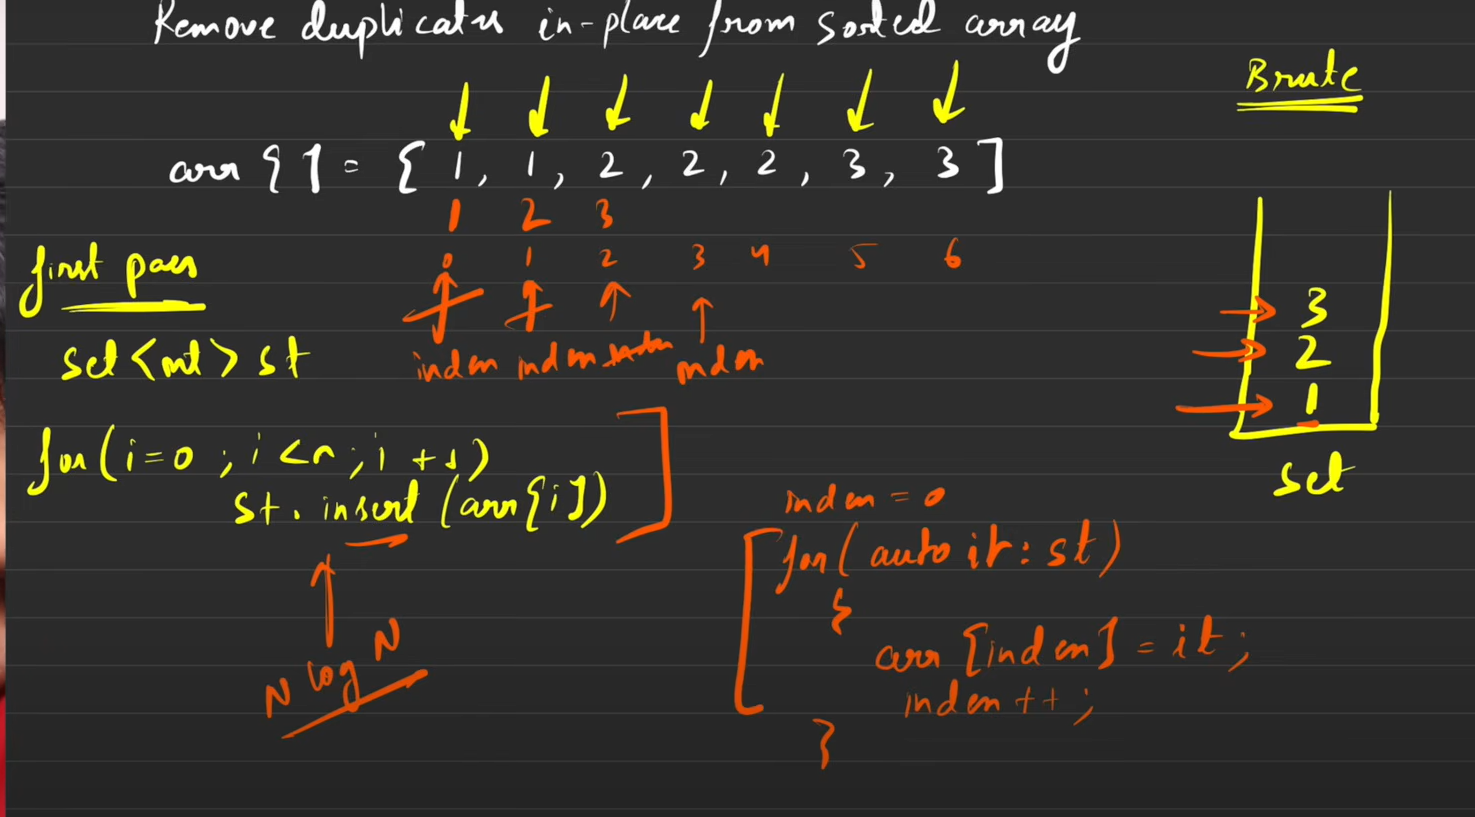 Remove duplicates in-place from sorted array
Brute
arr [ ] = [ 1, 1, 2, 2, 2, 3, 3 ]
1 2 3
0 1 2 3 4 5 6
first pass
index index index index
set <int> st
3
2
1
set
for (i=0 ; i<n ; i++)
st. insert (arr[i])
N log N
index = 0
for ( auto it : st )
{
arr [index] = it ;
index ++ ;
}